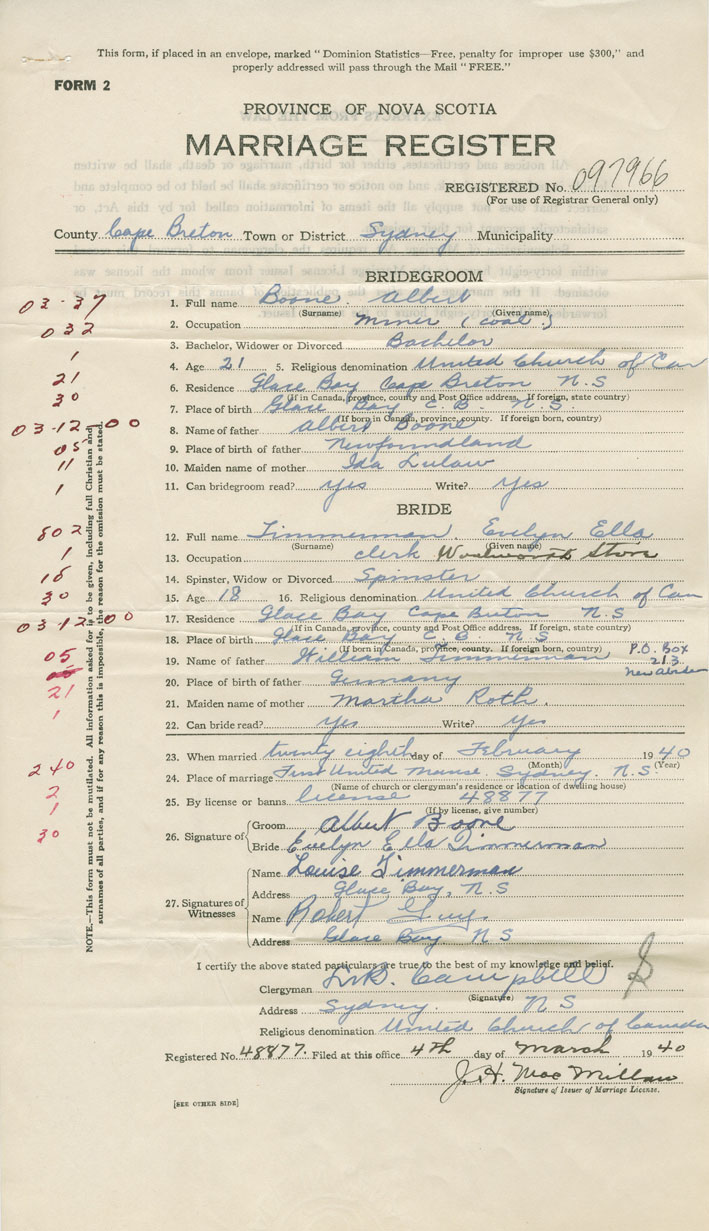 This form, if placed in an envelope, marked "Dominion Statistics—Free, penalty for improper use $300," and
properly addressed will pass through the Mail "FREE."
FORM 2
PROVINCE OF NOVA SCOTIA
MARRIAGE REGISTER
REGISTERED No. 097966
(For use of Registrar General only)
County Cape Breton Town or District Sydney Municipality
BRIDEGROOM
03-37
1. Full name Boone. Albert
(Surname) (Given name)
032
2. Occupation Miner (coal.)
3. Bachelor, Widower or Divorced Bachelor
1
4. Age 21 5. Religious denomination United Church of Can
21
6. Residence Glace Bay Cape Breton N.S
(If in Canada, province, county and Post Office address. If foreign, state country)
30
7. Place of birth Glace Bay C.B. N.S.
(If born in Canada, province, county. If foreign born, country)
03-12-00
8. Name of father Albert Boone
05
9. Place of birth of father Newfoundland
11
10. Maiden name of mother Ida
1
11. Can bridegroom read? yes Write? yes
BRIDE
802
12. Full name Timmerman. Evelyn Ella
(Surname) (Given name)
1
13. Occupation clerk Woolworth Store
18
14. Spinster, Widow or Divorced Spinster
30
15. Age 18 16. Religious denomination United Church of Can
03-12-00
17. Residence Glace Bay Cape Breton N.S
(If in Canada, province, county and Post Office address. If foreign, state country)
18. Place of birth Glace Bay C.B. N S
(If born in Canada, province, county. If foreign born, country)
05
19. Name of father William Timmerman
P.O. Box
213
New
20. Place of birth of father Germany
21
21. Maiden name of mother Martha Roth.
1
22. Can bride read? yes Write? yes
23. When married twenty eighth day of February 1940
(Month) (Year)
240
24. Place of marriage First United Manse. Sydney. N.S.
(Name of church or clergyman's residence or location of dwelling house)
2
25. By license or banns license 48877
(If by license, give number)
1
30
26. Signature of
Groom Albert Boone
Bride Evelyn Ella Timmerman
27. Signatures of Witnesses
Name Louise Timmerman
Address Glace Bay, N.S
Name Robert Guy.
Address Glace Bay N S
NOTE.—This form must not be mutilated. All information asked for is to be given, including full Christian and
surnames of all parties, and if for any reason this is impossible, the reason for the omission must be stated.
I certify the above stated particulars are true to the best of my knowledge and belief.
Clergyman Campbell
(Signature)
Address Sydney. N S
Religious denomination United Church of Canada
Registered No. 48877. Filed at this office 4th day of March 1940
J. H. MacMillan
Signature of Issuer of Marriage License.
[SEE OTHER SIDE]